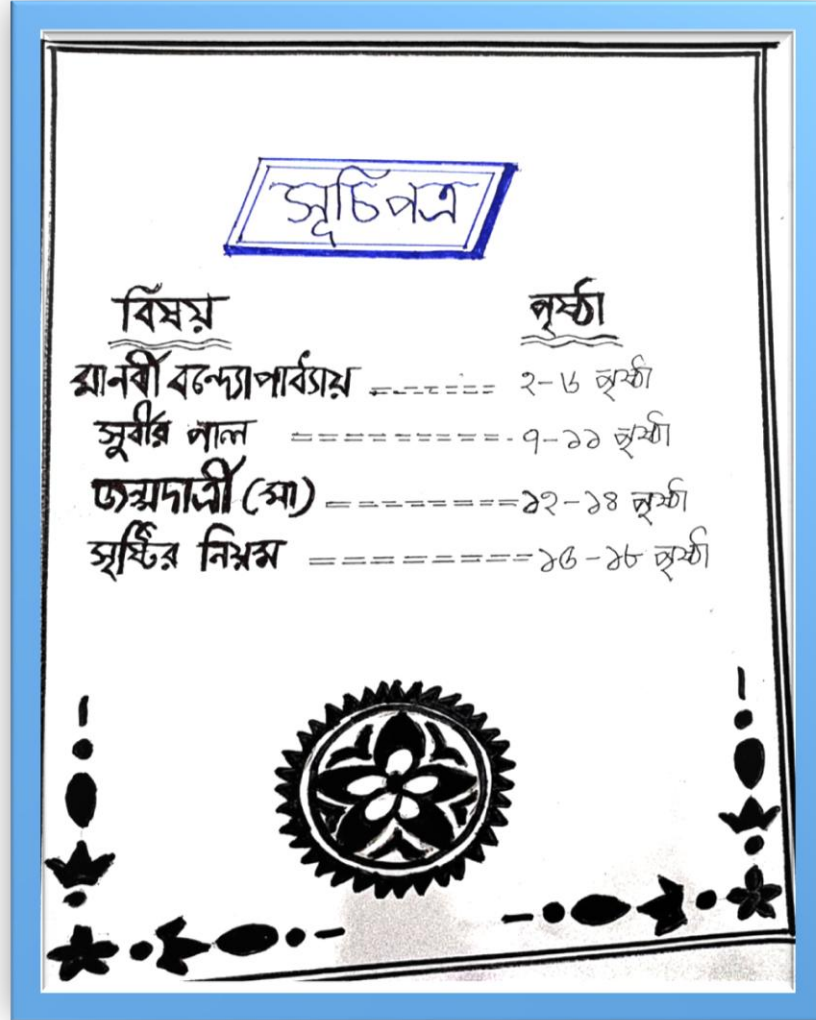 সূচিপত্র
বিষয় পৃষ্ঠা
মানবী বন্দ্যোপাধ্যায় ---------- ২-৬ পৃষ্ঠা
সুবীর পাল ========== ৭-১১ পৃষ্ঠা
জন্মদাত্রী (মা) ---------- ১২-১৪ পৃষ্ঠা
সৃষ্টির নিয়ম ========== ১৫-১৮ পৃষ্ঠা